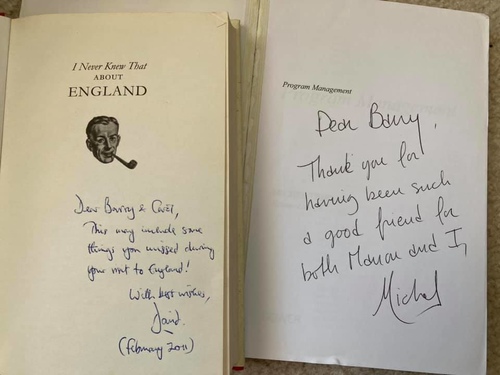 I Never Knew That
ABOUT
ENGLAND
Dear Barry & Carol,
This may include some
things you missed during
your visit to England!
With best wishes,
David.
(February 2011)
Program Management
Dear Barry,
Thank you for
having been such
a good friend for
both Manon and I,
Michel